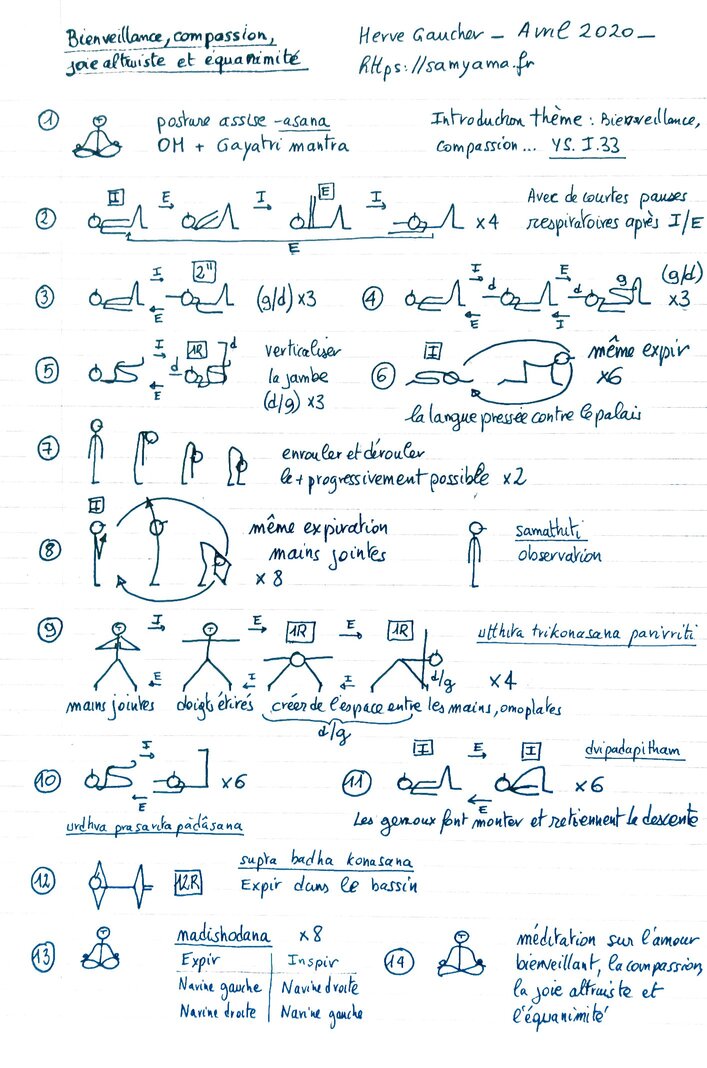 Bienveillance, compassion,
joie altruiste et équanimité
Herve Gaucher - Avril 2020 -
https://samyama.fr
1 posture assise - asana
OM + Gayatri mantra
Introduction thème : Bienveillance,
compassion... YS. I.33
2 I E I E I x4
E
Avec de courtes pauses
respiratoires après I/E
3 I 2" (g/d) x3
E
4 I d E d g (g/d)
E I x3
5 I 1R d d
E
verticaliser
la jambe
(d/g) x3
6 I même expir
x6
la langue pressée contre le palais
7 enrouler et dérouler
le + progressivement possible x2
8 I même expiration
mains jointes
x 8
samathiti
observation
9 I E 1R E 1R utthita trikonasana parivriti
E I I d/g x4
mains jointes doigts étirés créer de l'espace entre les mains, omoplates
d/g
10 I x6
E
urdhva prasarita pàdâsana
11 I E I dvipadapitham
E x6
Les genoux font monter et retiennent la descente
12 12R supta badha konasana
Expir dans le bassin
13 nadishodana x8
Expir Inspir
Narine gauche Narine droite
Narine droite Narine gauche
14 méditation sur l'amour
bienveillant, la compassion,
la joie altruiste et
l'équanimité